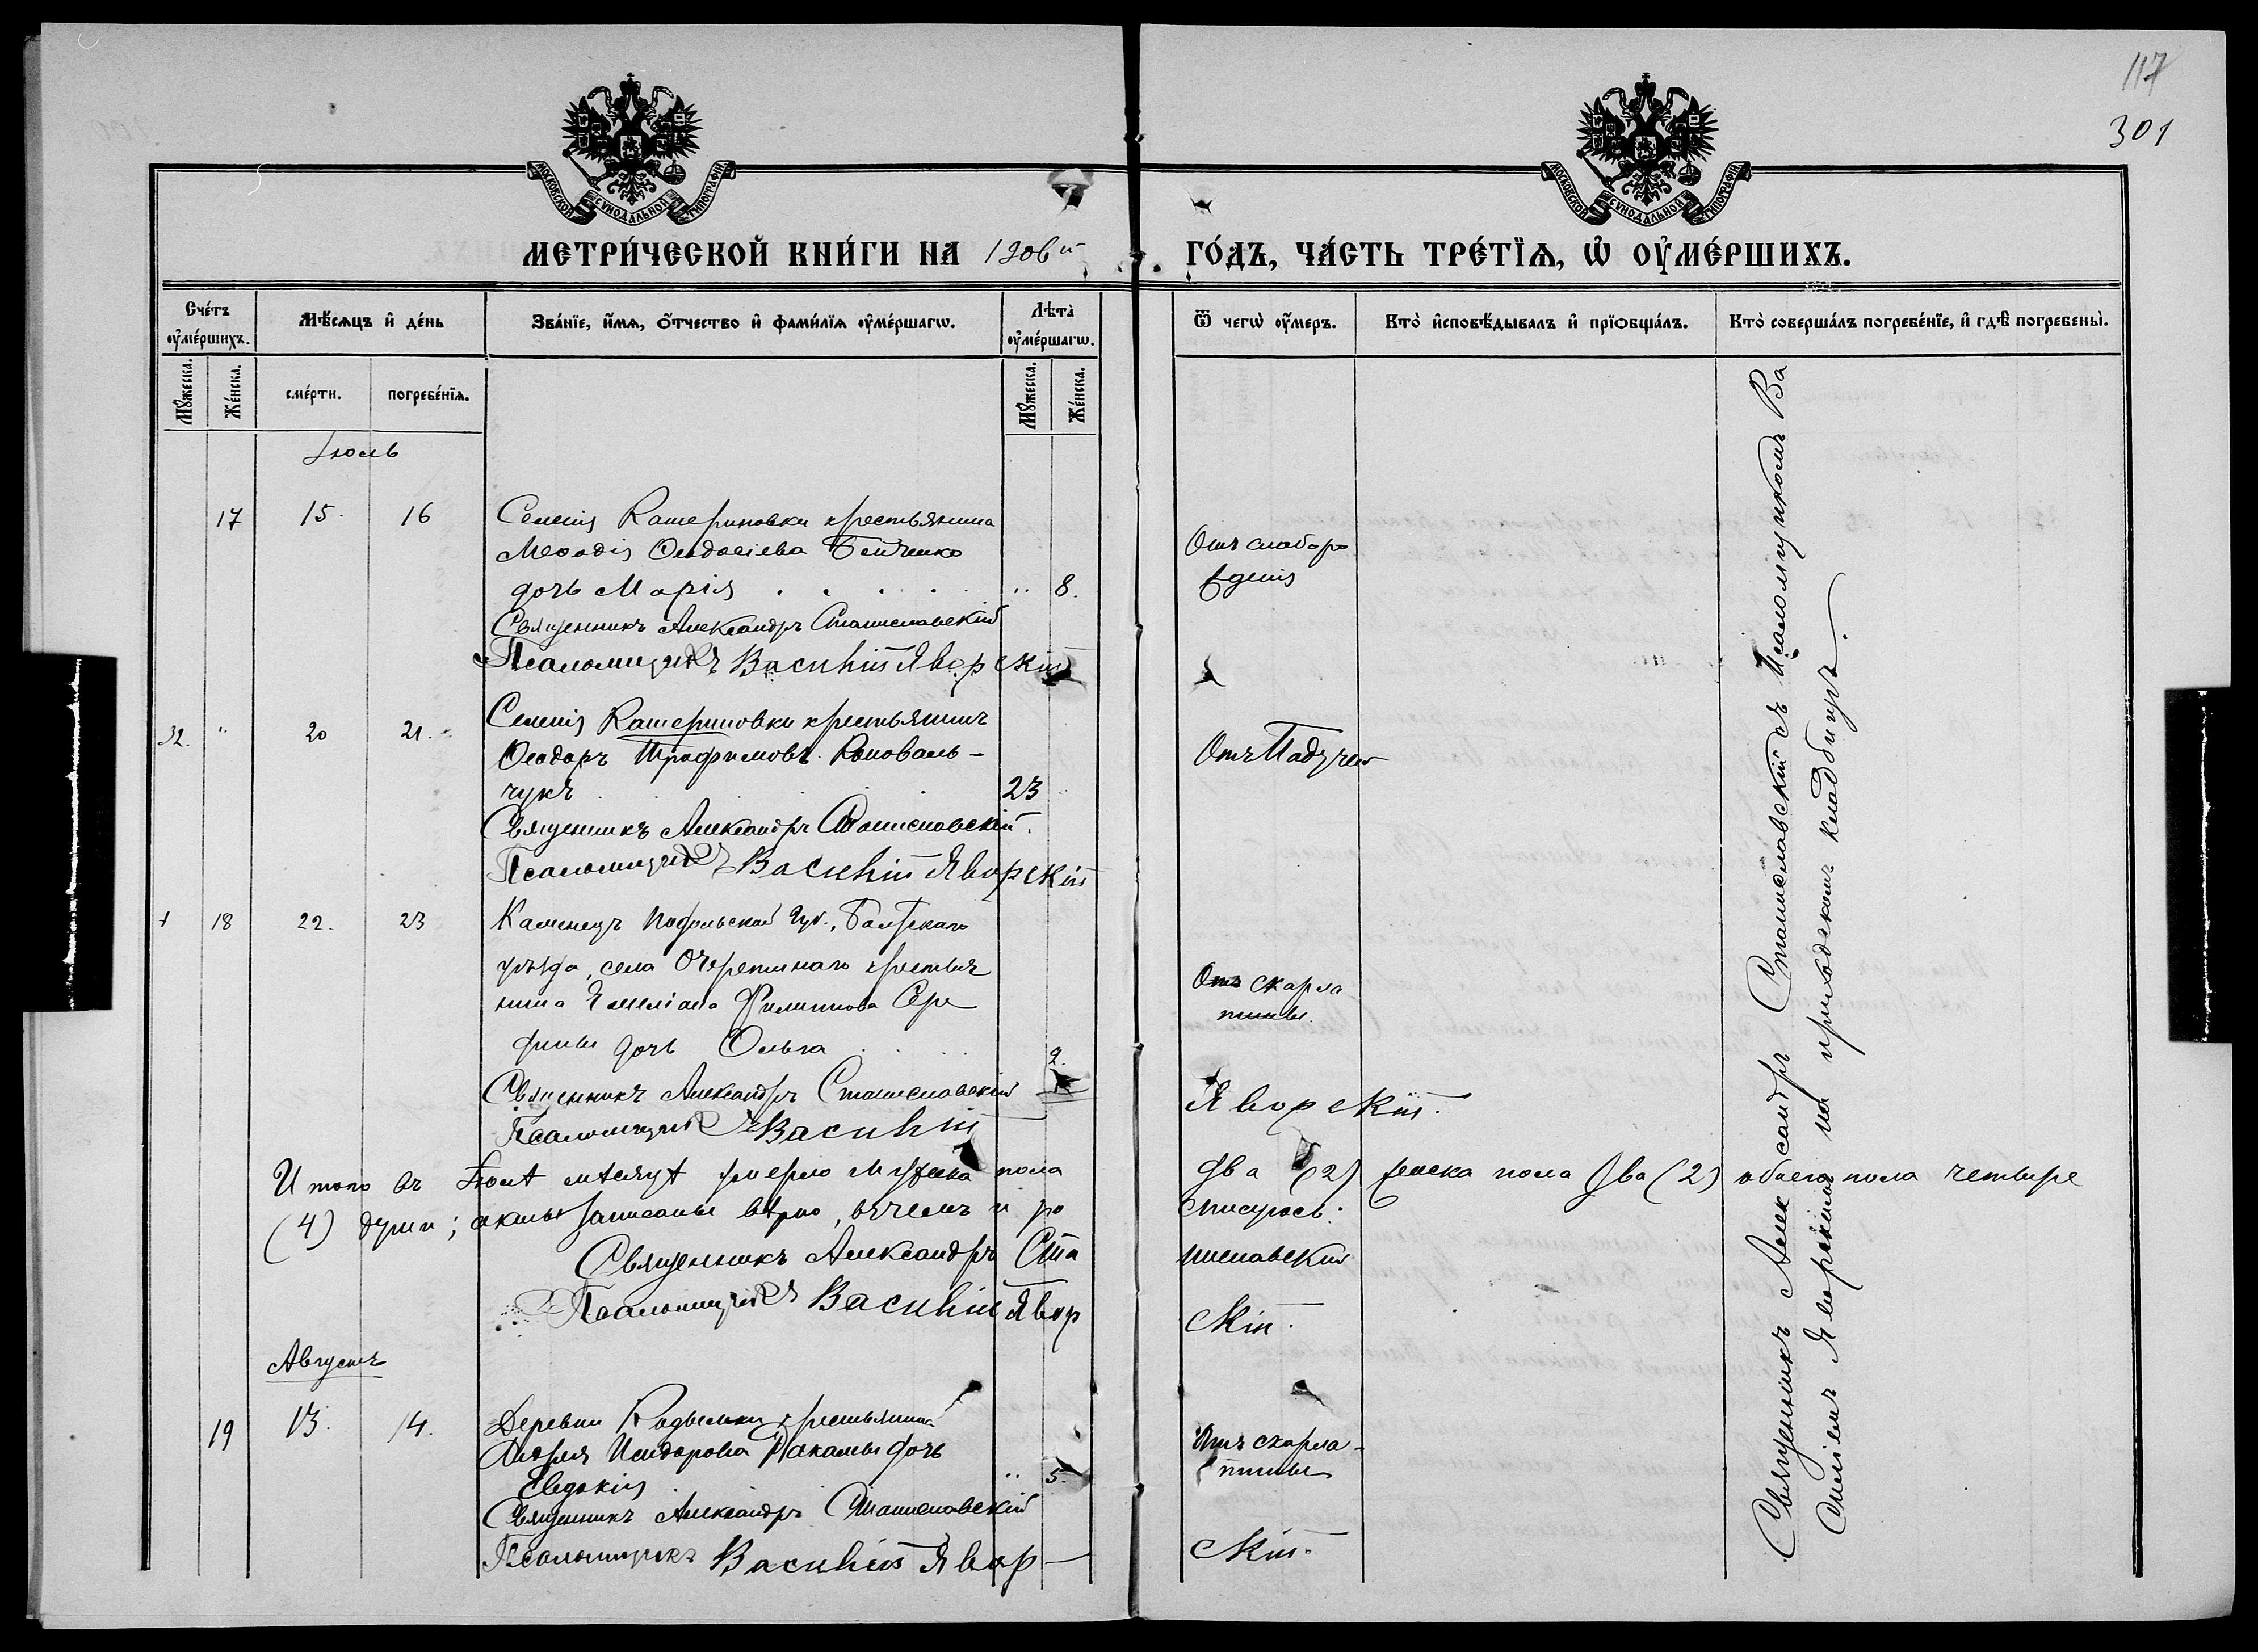 117
301
МОСКОВСКОЙ СѴНОДАЛЬНОЙ ТИПОГРАФІИ
МОСКОВСКОЙ СѴНОДАЛЬНОЙ ТИПОГРАФІИ
МЕТРИ́ЧЕСКОЙ КНИ́ГИ НА 1906й ГО́ДЪ, ЧА́СТЬ ТРЕ́ТЇѦ, Ѡ҆ ОУ҆МЕ́РШИХЪ.
Сче́тъ оу҆ме́ршихъ.
Мѣ́сяцъ и҆ де́нь
Зва́нїе, и҆́мѧ, ѻ҆́тчество и҆ фами́лїѧ оу҆ме́ршагѡ.
Лѣ́та̀ оу҆ме́ршагѡ.
Ѿ чегѡ̀ оу҆́меръ.
Кто̀ и҆сповѣ́дывалъ и҆ прїѻбща́лъ.
Кто̀ соверша́лъ погребе́нїе, и҆ гдѣ̀ погребены̀.
Мꙋ́жеска.
Же́нска.
сме́рти.
погребе́нїѧ.
Мꙋ́жеска.
Же́нска.
Іюль
17 15. 16 Селенія Катериновки крестьянина
Меѳодія Ѳеодосіева
дочь Марія . . . . . " 8.
Отъ слаборо
жденія
Священникъ Александръ Станиславскій
Псаломщикъ Василій Яворскій
32. " 20 21. Селенія Катериновки крестьянинъ
Ѳеодоръ Трофимовъ Коноваль-
чукъ . . . . 23 "
Отъ Падучей
Священникъ Александръ Станиславскій.
Псаломщикъ Василій Яворскій
18 22. 23 Каменецъ Подольской Губ., Балтскаго
уѣзда, села Очеретнаго крестья
нина Емеліана Филиппова Сере
дины дочь Ольга . . . . 2.
Отъ скарла
тины.
Священникъ Александръ Станиславскій
Псаломщикъ Василій Яворскій.
Итого въ Іюлѣ мѣсяцѣ умерло мужеска пола два (2) женска пола два (2) обоего пола четыре
(4) души; акты записаны вѣрно, въ чемъ и росписуюсь:
Священникъ Александръ Станиславскій
Псаломщикъ Василій Яворскій.
Августъ
19 13. 14. Деревни крестьянина
Андрея Исидорова дочь
Евдокія . " 5.
Отъ скарла-
тины
Священникъ Александръ Станиславскій
Псаломщикъ Василій Яворскій.
Священникъ Александръ Станиславскій съ Псаломщикомъ Ва
силіемъ Яворскимъ на приходскомъ кладбищѣ.